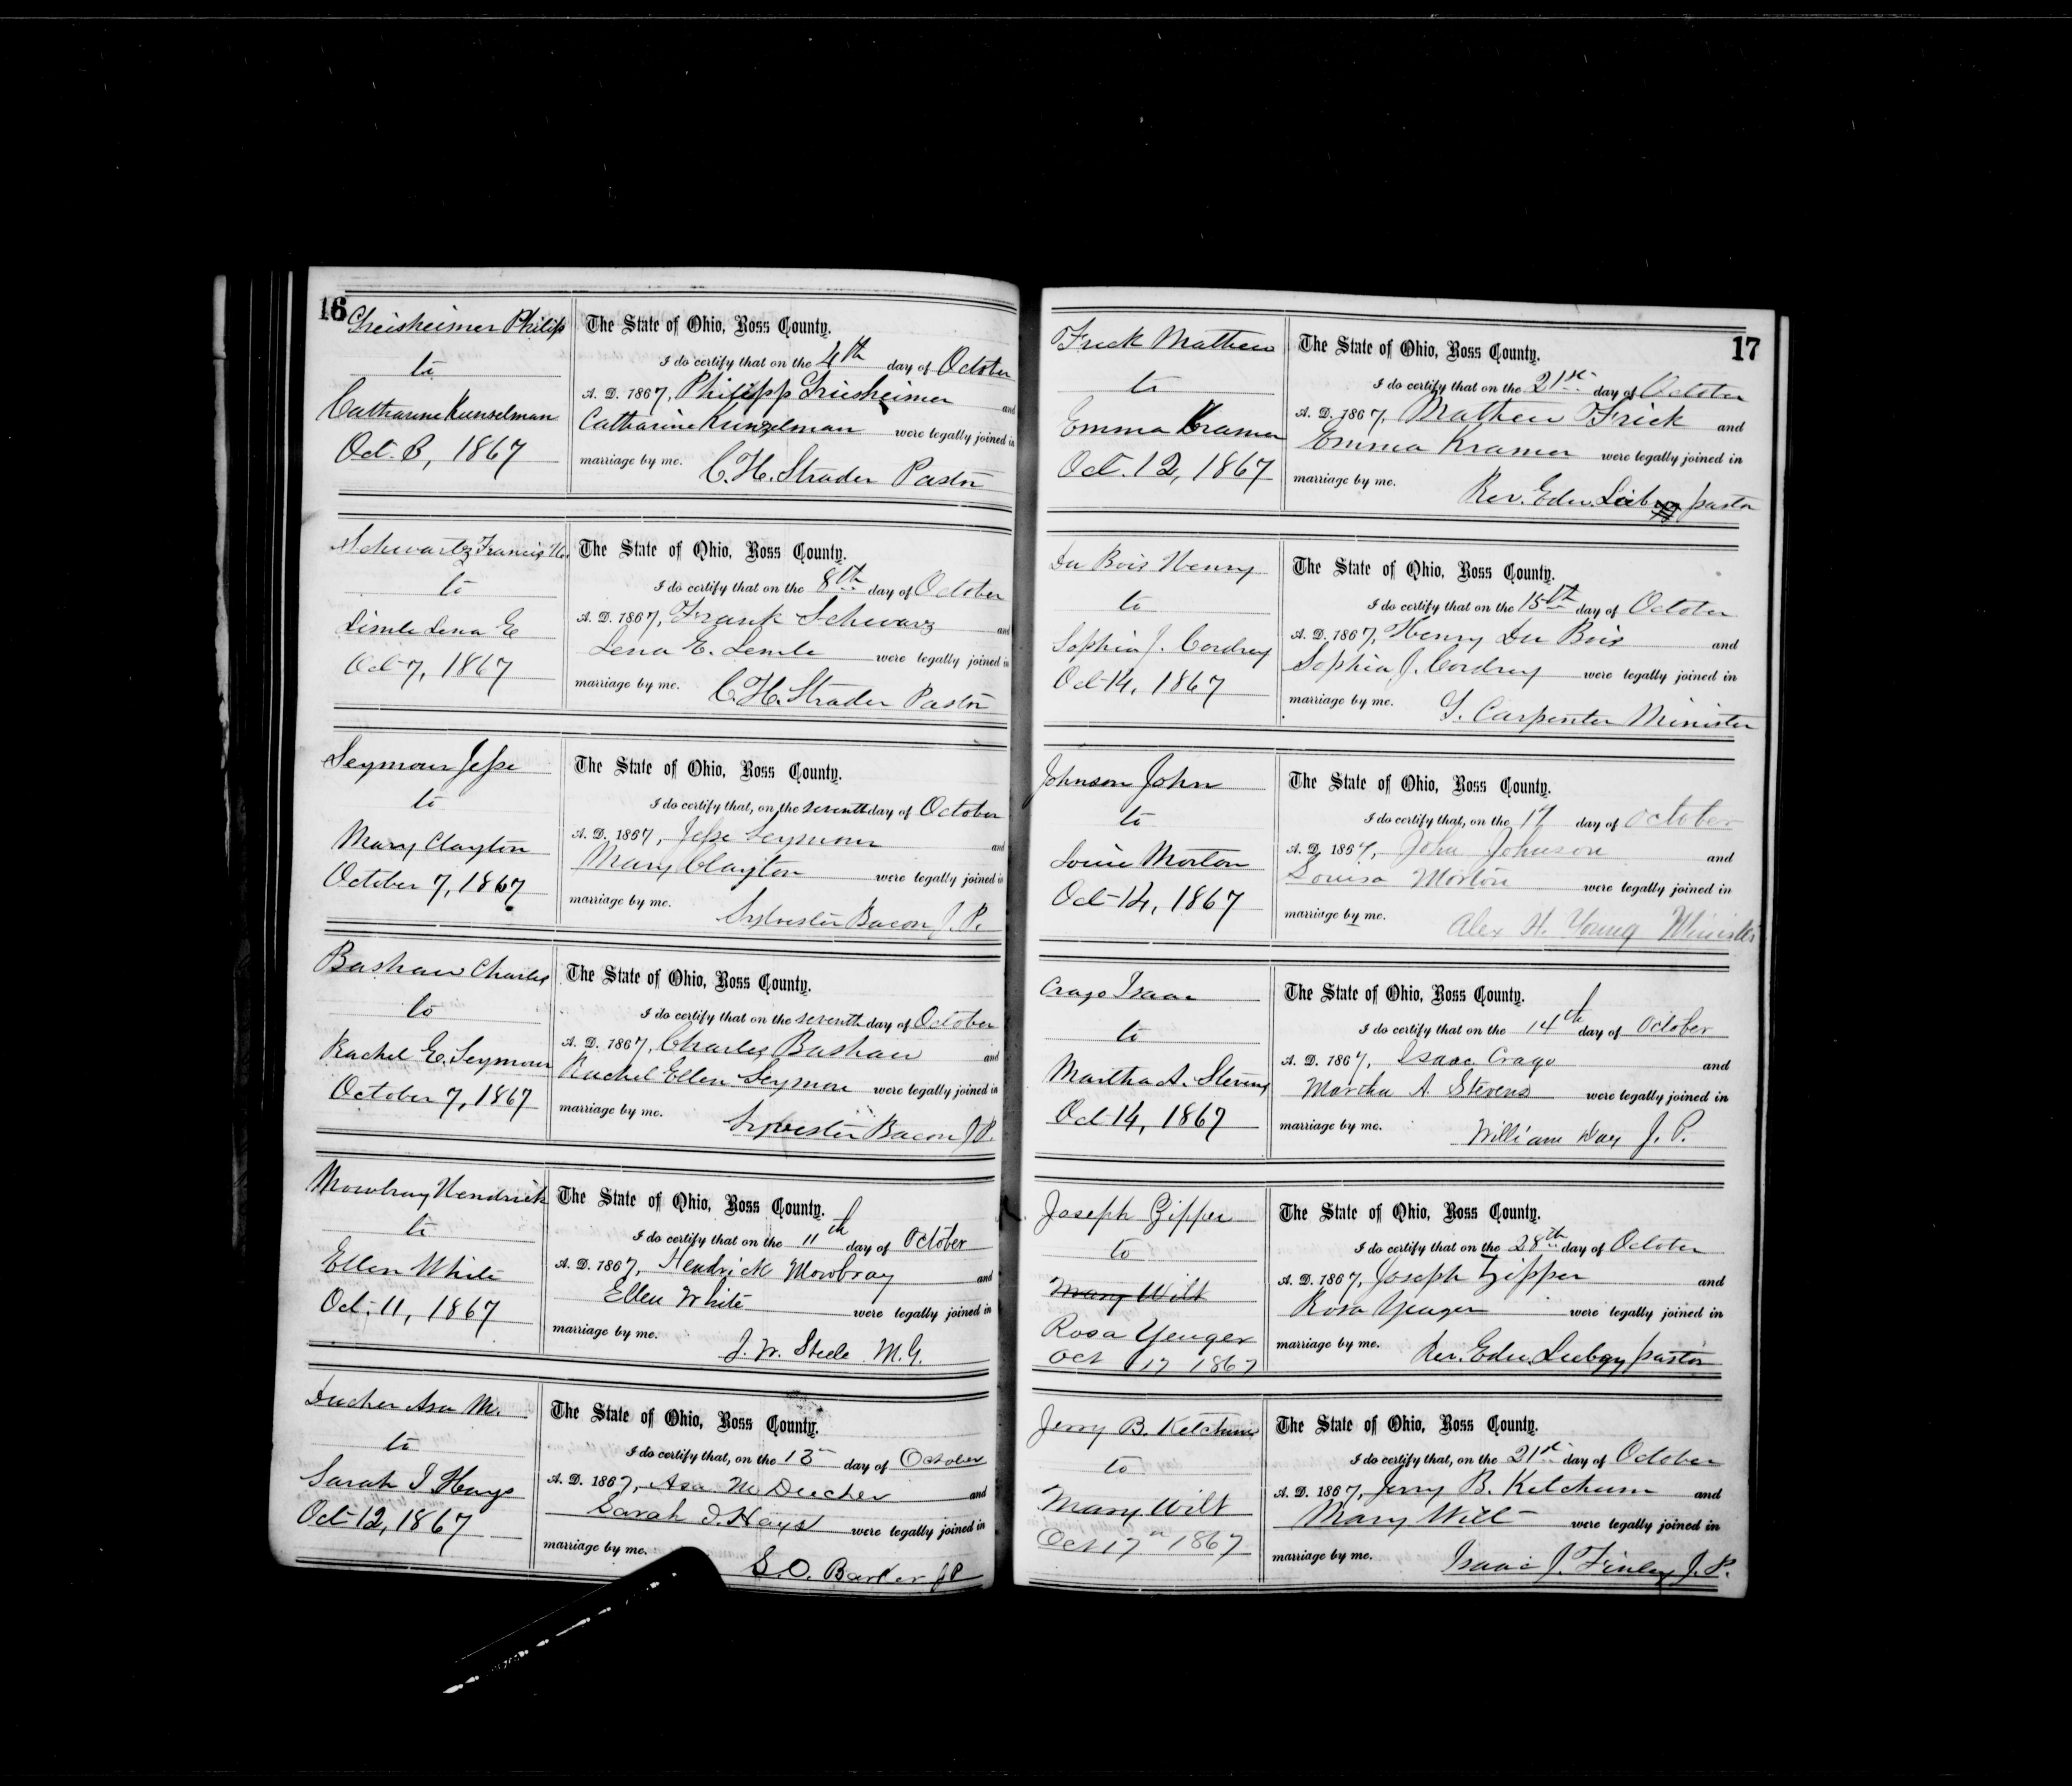 16
Greisheimer Philip
to
Catharine Kunselman
Oct. 3, 1867
The State of Ohio, Ross County.
I do certify that on the 4th day of October
A. D. 1867, Philipp Griesheimer and
Catharine Kunzelman were legally joined in
marriage by me. C. H. Strader Pastor
Schwartz Francis
to
Lena E
Oct 7, 1867
The State of Ohio, Ross County.
I do certify that on the 8th day of October
A. D. 1867, Frank Schwarz and
Lena E. Lemle were legally joined in
marriage by me. C. H. Strader Pastor
Seymour Jesse
to
Mary Clayton
October 7, 1867
The State of Ohio, Ross County.
I do certify that, on the seventh day of October
A. D. 1867, Jesse Seymour and
Mary Clayton were legally joined in
marriage by me. Sylvester Bacon J. P.
Bashaw Charles
to
Rachel E. Seymour
October 7, 1867
The State of Ohio, Ross County.
I do certify that on the seventh day of October
A. D. 1867, Charles Bashaw and
Rachel Ellen Seymour were legally joined in
marriage by me. Sylvester Bacon J P.
Mowbray Hendrick
to
Ellen White
Oct. 11, 1867
The State of Ohio, Ross County.
I do certify that on the 11th day of October
A. D. 1867, Hendrick Mowbray and
Ellen White were legally joined in
marriage by me. J. W. Steele M. G.
Ducher Asa M.
to
Sarah I Hays
Oct 12, 1867
The State of Ohio, Ross County.
I do certify that, on the 13 day of October
A. D. 1867, Asa M Ducher and
Sarah I. Hays were legally joined in
marriage by me. S. O. Barker J P
17
Frick Mathew
to
Emma Kramer
Oct. 12, 1867
The State of Ohio, Ross County.
I do certify that on the 21st day of October
A. D. 1867, Mathew Frick and
Emma Kramer were legally joined in
marriage by me. Rev. Edw. pastor
Du Bois Henry
to
Sophia J. Cordrey
Oct 14, 1867
The State of Ohio, Ross County.
I do certify that on the 15th day of October
A. D. 1867, Henry Du Bois and
Sophia J. Cordrey were legally joined in
marriage by me. G. Carpenter Minister
Johnson John
to
Louisa Morton
Oct 14, 1867
The State of Ohio, Ross County.
I do certify that, on the 17 day of October
A. D. 1867, John Johnson and
Louisa Morton were legally joined in
marriage by me. Alex H. Young Minister
Crago Isaac
to
Martha A. Stevens
Oct 14, 1867
The State of Ohio, Ross County.
I do certify that on the 14th day of October
A. D. 1867, Isaac Crago and
Martha A. Stevens were legally joined in
marriage by me. William Day J. P.
Joseph Zipper
to
Mary Wilt
Rosa Yenger
Oct 17 1867
The State of Ohio, Ross County.
I do certify that on the 28th day of October
A. D. 1867, Joseph Zipper and
Rosa Yenger were legally joined in
marriage by me. Rev. Edw. pastor
Jerry B. Ketchum
to
Mary Wilt
Oct 17th 1867
The State of Ohio, Ross County.
I do certify that, on the 21st day of October
A. D. 1867, Jerry B. Ketchum and
Mary Wilt were legally joined in
marriage by me. Isaac J. Finley J. P.